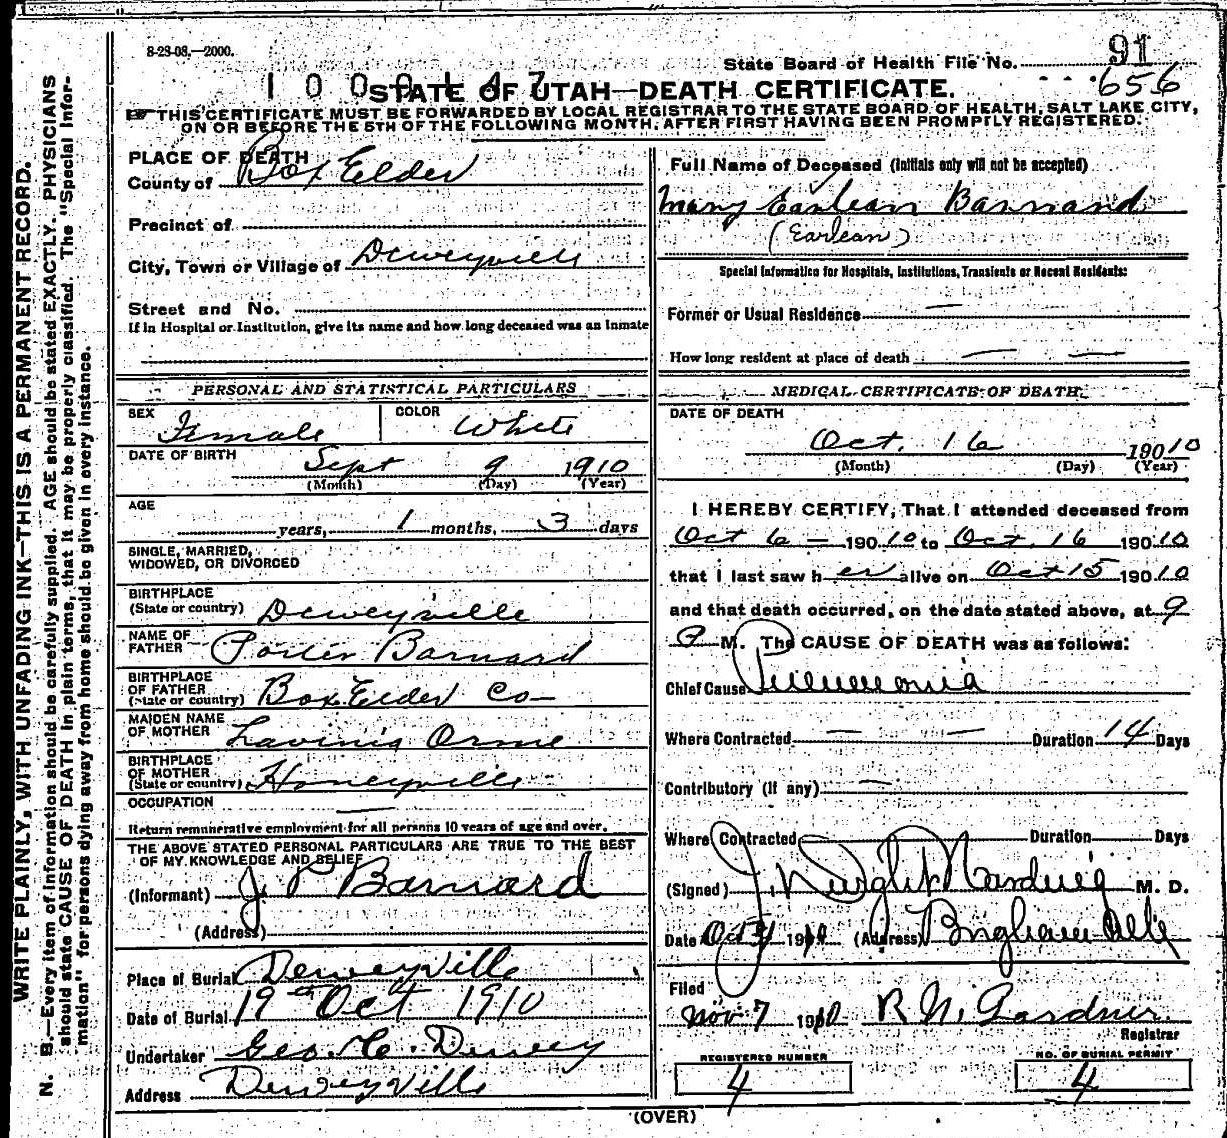 8-23-08.—2000.
State Board of Health File No. 91
656
1000147
STATE OF UTAH—DEATH CERTIFICATE.
THIS CERTIFICATE MUST BE FORWARDED BY LOCAL REGISTRAR TO THE STATE BOARD OF HEALTH, SALT LAKE CITY,
ON OR BEFORE THE 5TH OF THE FOLLOWING MONTH, AFTER FIRST HAVING BEEN PROMPTLY REGISTERED.
PLACE OF DEATH
County of Box Elder
Precinct of
City, Town or Village of Deweyville
Street and No.
If in Hospital or Institution, give its name and how long deceased was an inmate
PERSONAL AND STATISTICAL PARTICULARS
SEX Female COLOR White
DATE OF BIRTH Sept 9 1910
(Month) (Day) (Year)
AGE
years, 1 months, 3 days
SINGLE, MARRIED,
WIDOWED, OR DIVORCED
BIRTHPLACE
(State or country) Deweyville
NAME OF
FATHER Porter Barnard
BIRTHPLACE
OF FATHER
(State or country) Box Elder Co—
MAIDEN NAME
OF MOTHER Lavinia Orme
BIRTHPLACE
OF MOTHER
(State or country) Honeyville
OCCUPATION —
Return remunerative employment for all persons 10 years of age and over.
THE ABOVE STATED PERSONAL PARTICULARS ARE TRUE TO THE BEST
OF MY KNOWLEDGE AND BELIEF
(Informant) J. P Barnard
(Address)
Place of Burial Deweyville
Date of Burial 19th Oct 1910
Undertaker Geo. C. Dewey
Address Deweyville
Full Name of Deceased (Initials only will not be accepted)
Mary Earlean Barnard
(Earlean)
Special Information for Hospitals, Institutions, Transients or Recent Residents:
Former or Usual Residence —
How long resident at place of death — —
MEDICAL CERTIFICATE OF DEATH
DATE OF DEATH
Oct. 16 19010
(Month) (Day) (Year)
I HEREBY CERTIFY, That I attended deceased from
Oct 6 — 19010 to Oct. 16 19010
that I last saw her alive on Oct 15 19010
and that death occurred, on the date stated above, at 9
P M. The CAUSE OF DEATH was as follows:
Chief Cause Pneumonia
Where Contracted — — Duration 14 Days
Contributory (if any) —
Where Contracted Duration Days
(Signed) J. Dwight Harding M. D.
Date Oct 1910 (Address) Brigham
Filed
Nov 7 1910 R. N. Gardner
Registrar
REGISTERED NUMBER
4
NO. OF BURIAL PERMIT
4
(OVER)
WRITE PLAINLY, WITH UNFADING INK—THIS IS A PERMANENT RECORD.
N. B.—Every item of information should be carefully supplied. AGE should be stated EXACTLY. PHYSICIANS
should state CAUSE OF DEATH in plain terms, that it may be properly classified. The "Special Infor-
mation" for persons dying away from home should be given in every instance.